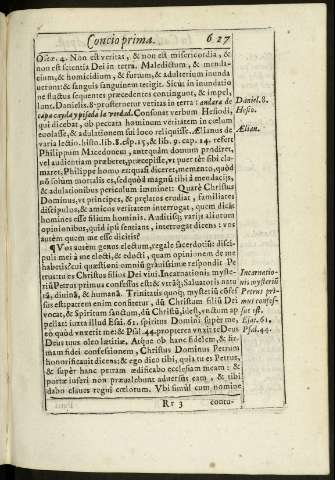 Concio prima. 627
Oseæ. 4. Non est veritas, & non est misericordia, &
non est scientia Dei in terra. Maledictum, & menda-
cium, & homicidium, & furtum, & adulterium inunda
uerunt: & sanguis sanguinem tetigit. Sicut in inundatio
ne fluctus sequentes præcedentes contingunt, & impel,
lunt. Danielis. 8. prosternetur veritas in terra: andara de
capa cayda y pisada la verdad. Consonat verbum Hesiodi,
qui dicebat, ob peccata hominum veritatem in cœlum
euolasse, & adulationem sui loco reliquisse. Ælianus de
varia lectio. histo. lib. 8. cap. 15, & lib. 9. cap. 14. refert
Philippum Macedonem, antequàm domum prodiret,
vel audientiam præberet, præcepisse, vt puer tèr sibi cla-
maret. Philippe homo es: quasi diceret, memento, quòd
nõ solum mortalis es, sed quòd magnũ tibi à mendacijs,
& adulationibus periculum imminet: Quarè Christus
Dominus, vt princeps, & prælatos erudiat, familiares
discipulos, & amicos veritatem interrogat, quem dicũt
homines esse filium hominis. Auditisq; varijs aliorum
opinionibus, quid ipsi sentiant, interrogat dicens: vos
autèm quem me esse dicitis?
¶ Vos autèm genus electum, regale sacerdotiũ: disci-
puli mei à me electi, & edocti, quam opinionem de me
habetis? cui quæstioni omniũ grauissimæ respondit Pe
trus: tu es Christus filius Dei viui. Incarnationis myste-
riũ Petrus primus confessus est: & veritã, Saluatoris natu
rã, diuinã, & humanã. Trinitatis quoq; mysteriũ cõfes
sus est: patrem enim confitetur, dũ Christum filiũ Dei
vocat, & Spiritum sanctum, dũ Christũ, idest, vnctum ap
pellat: iuxta illud Esai. 61. spiritus Domini supèr me,
eò quòd vnxerit me: & Psal. 44. proptereà vnxit te Deus
Deus tuus oleo lætitiæ. Atque ob hanc fidelem, & fir-
mam fidei confessionem, Christus Dominus Petrum
honorificauit dicens: & ego dico tibi, quia tu es Petrus,
& supèr hanc petram ædificabo ecclesiam meam: &
portæ inferi non præualebunt aduersùs eam, & tibi
dabo claues regni cœlorum. Vbi simul cum nomine
Rr 3 contu-
Daniel. 8.
Hesio.
Ælian.
Incarnatio-
nis mysteriũ
Petrus pri-
mus confes-
sus est.
Esai. 61.
Psal. 44.